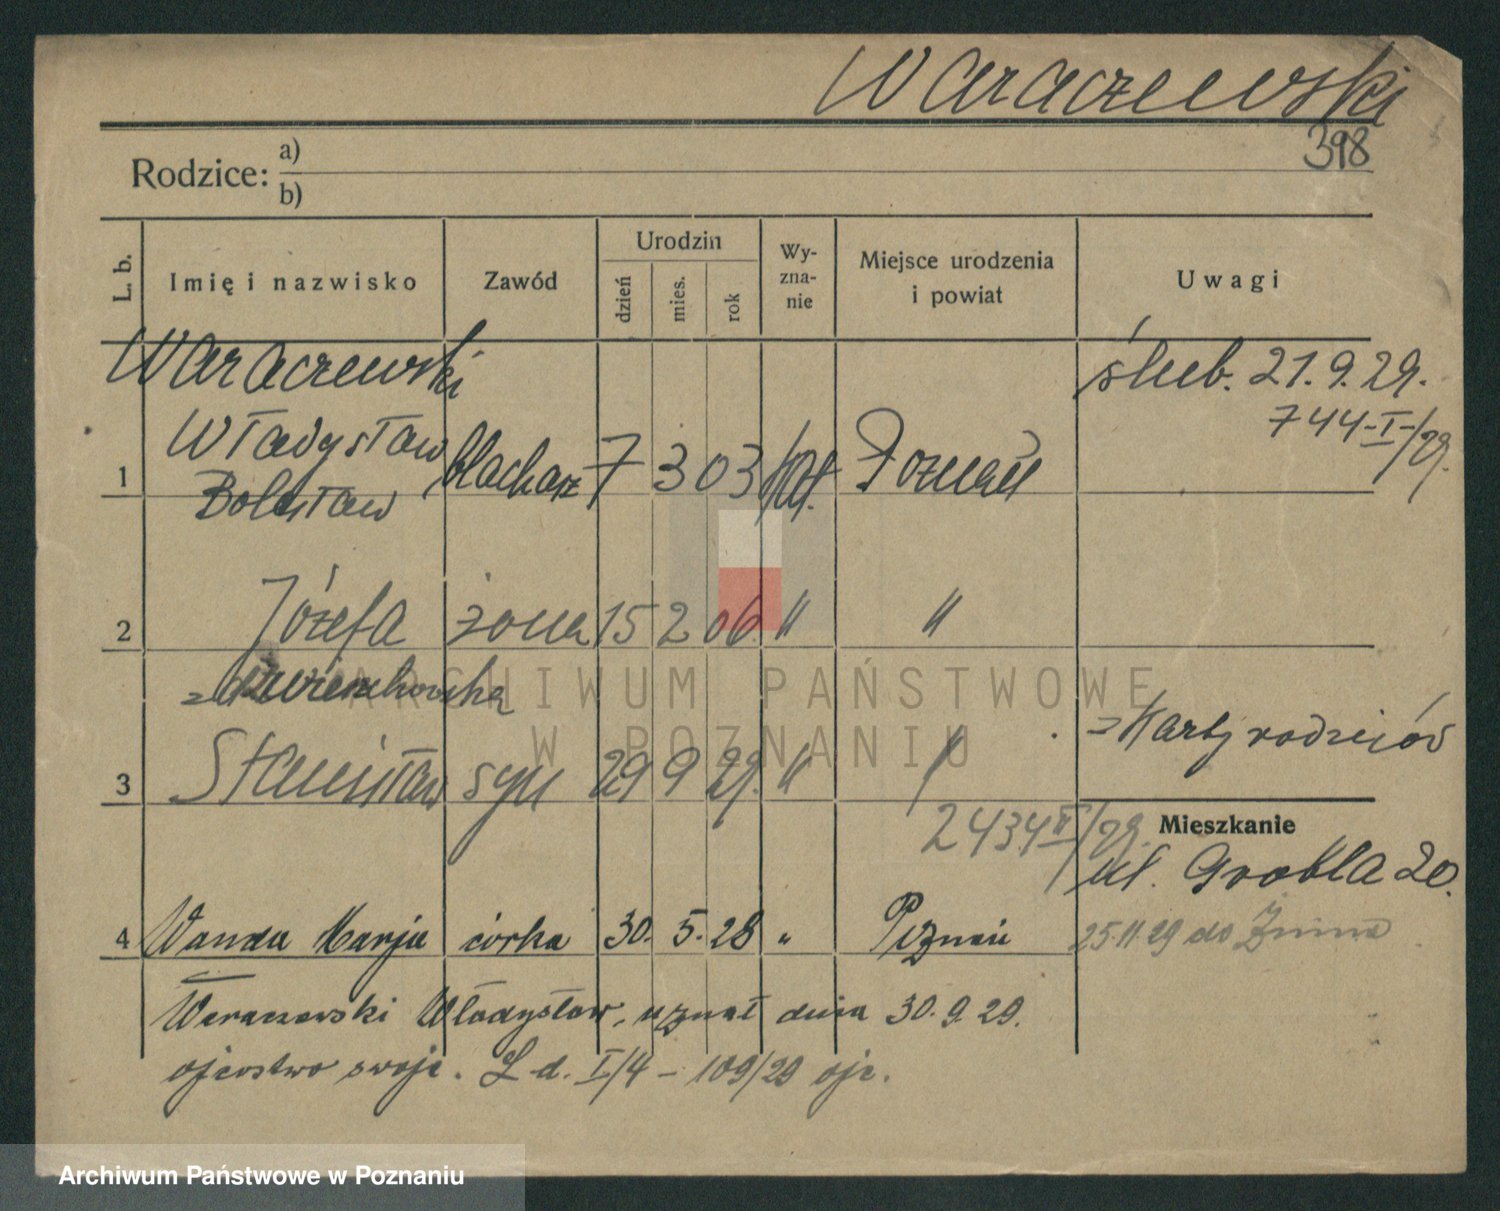 Waraczewski
398
Rodzice: a)
b)
L. b.
Imię i nazwisko
Zawód
Urodzin
dzień
mies.
rok
Wy-
zna-
nie
Miejsce urodzenia
i powiat
Uwagi
Waraczewski
ślub. 21.9.29.
744-I-/29.
1 Władysław blacharz 7 3 03 kat. Poznań
Bolesław
2 Józefa żona 15 2 06 " "
z
z karty rodziców
3 Stanisław syn 29 9 29. " "
2434 II/29.
Mieszkanie
ul. Grobla 20.
4 Wanda Marja córka 30. 5. 28 " Poznań
25.11.29 do Żnina
Waraczewski Władysław, uznał dnia 30.9.29.
ojcostwo swoje. L.d. I/4 - 109/29 ojc.
ARCHIWUM PAŃSTWOWE
W POZNANIU
Archiwum Państwowe w Poznaniu